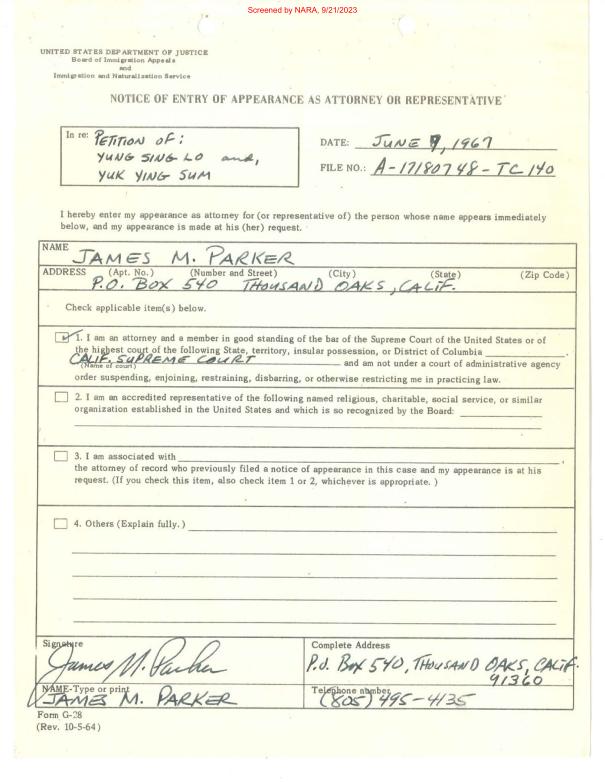 Screened by NARA, 9/21/2023
UNITED STATES DEPARTMENT OF JUSTICE
Board of Immigration Appeals
and
Immigration and Naturalization Service
NOTICE OF ENTRY OF APPEARANCE AS ATTORNEY OR REPRESENTATIVE
In re: PETITION OF:
YUNG SING LO and,
YUK YING SUM
DATE: JUNE 9, 1967
FILE NO.: A-17180748-TC140
I hereby enter my appearance as attorney for (or representative of) the person whose name appears immediately
below, and my appearance is made at his (her) request.
NAME
JAMES M. PARKER
ADDRESS (Apt. No.) (Number and Street) (City) (State) (Zip Code)
P.O. BOX 540 THOUSAND OAKS, CALIF.
Check applicable item(s) below.
1. I am an attorney and a member in good standing of the bar of the Supreme Court of the United States or of
the highest court of the following State, territory, insular possession, or District of Columbia
CALIF. SUPREME COURT and am not under a court of administrative agency
(Name of court)
order suspending, enjoining, restraining, disbarring, or otherwise restricting me in practicing law.
2. I am an accredited representative of the following named religious, charitable, social service, or similar
organization established in the United States and which is so recognized by the Board:
3. I am associated with
the attorney of record who previously filed a notice of appearance in this case and my appearance is at his
request. (If you check this item, also check item 1 or 2, whichever is appropriate.)
4. Others (Explain fully.)
Signature
James M. Parker
Complete Address
P.O. BOX 540, THOUSAND OAKS, CALIF.
91360
NAME-Type or print
JAMES M. PARKER
Telephone number
(805) 495-4135
Form G-28
(Rev. 10-5-64)